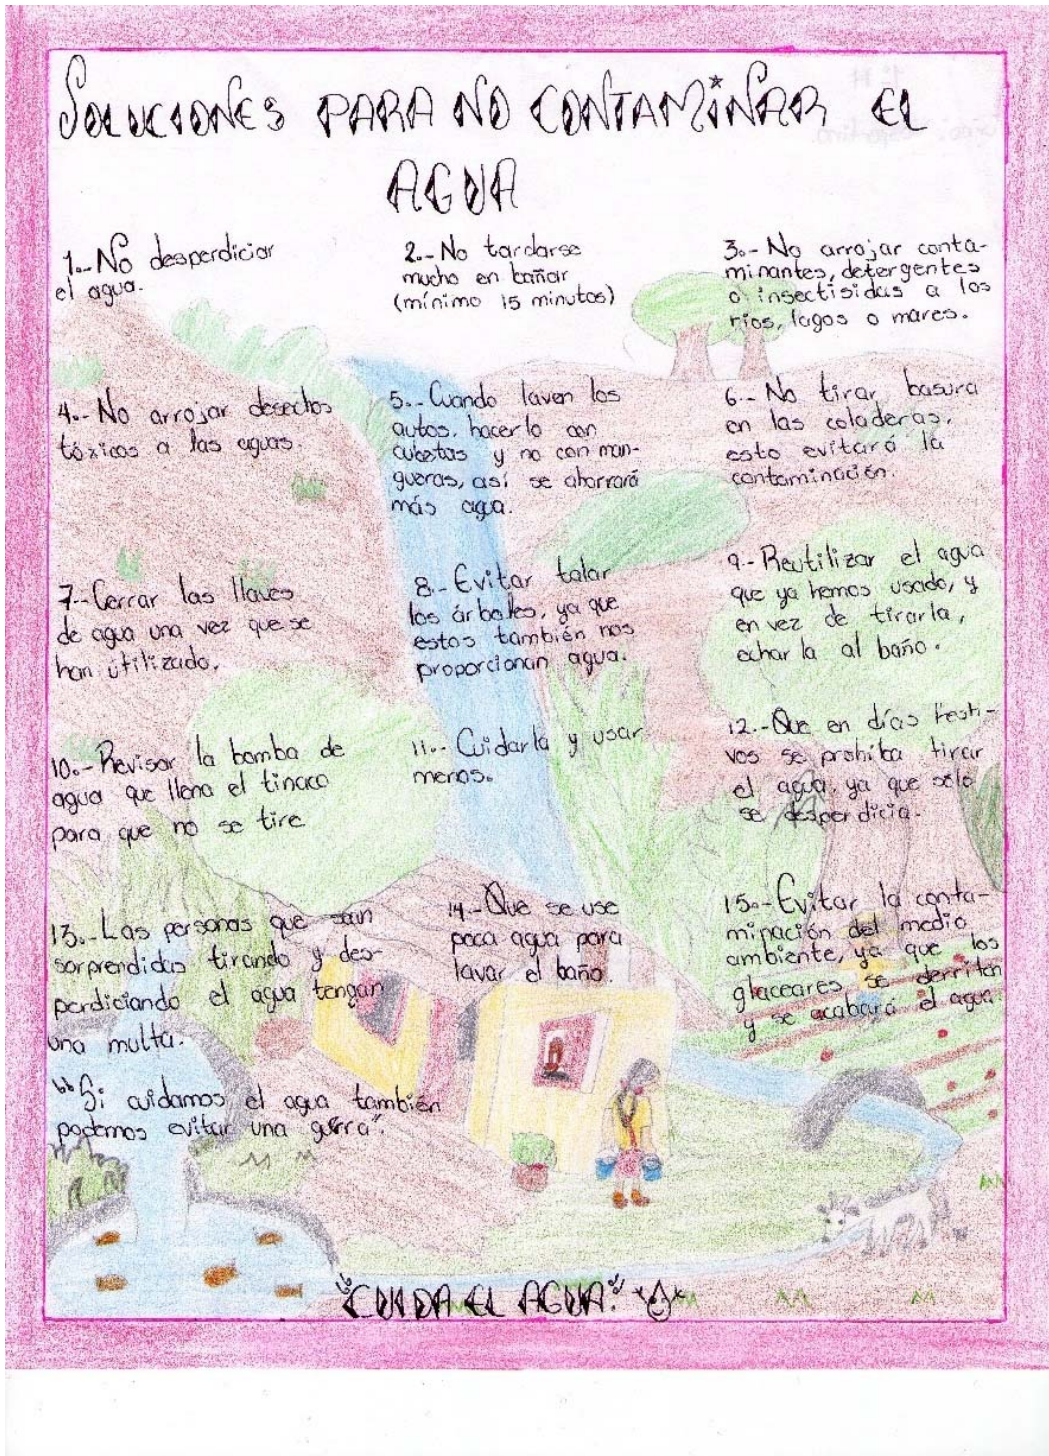 SOLUCIONES PARA NO CONTAMINAR EL
AGUA
1.-No desperdiciar
el agua.
2.-No tardarse
mucho en bañar
(mínimo 15 minutos)
3.-No arrojar conta-
minantes, detergentes
o insectisidas a los
ríos, lagos o mares.
4.-No arrojar desechos
tóxicos a las aguas.
5.-Cuando laven los
autos, hacerlo con
cubetas y no con man-
gueras, así se ahorrará
más agua.
6.-No tirar basura
en las coladeras,
esto evitará la
contaminación.
7.-Cerrar las llaves
de agua una vez que se
han útilizado.
8.-Evitar talar
los árboles, ya que
estos también nos
proporcionan agua.
9.-Reutilizar el agua
que ya hemos usado, y
en vez de tirarla,
echarla al baño.
10.-Revisar la bomba de
agua que llena el tinaco
para que no se tire
11.-Cuidarla y usar
menos.
12.-Que en días festi-
vos se prohiba tirar
el agua, ya que sólo
se desperdicia.
13.-Las personas que sean
sorprendidas tirando y des-
perdiciando el agua tengan
una multa.
14.-Que se use
poca agua para
lavar el baño.
15.-Evitar la conta-
minación del medio
ambiente, ya que los
glaceares se derriten
y se acabará el agua.
"Si cuidamos el agua también
podemos evitar una guerra".
"CUIDA EL AGUA."